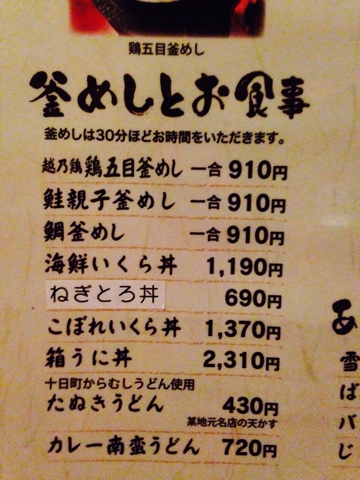 鶏五目釜めし
釜めしとお食事
釜めしは30分ほどお時間をいただきます。
越乃鶏 鶏五目釜めし 一合 910円
鮭親子釜めし 一合 910円
鯛釜めし 一合 910円
海鮮いくら丼 1,190円
ねぎとろ丼 690円
こぼれいくら丼 1,370円
箱うに丼 2,310円
十日町からむしうどん使用
たぬきうどん 430円
某地元名店の天かす
カレー南蛮うどん 720円
あ
雪
ば
バ
じ